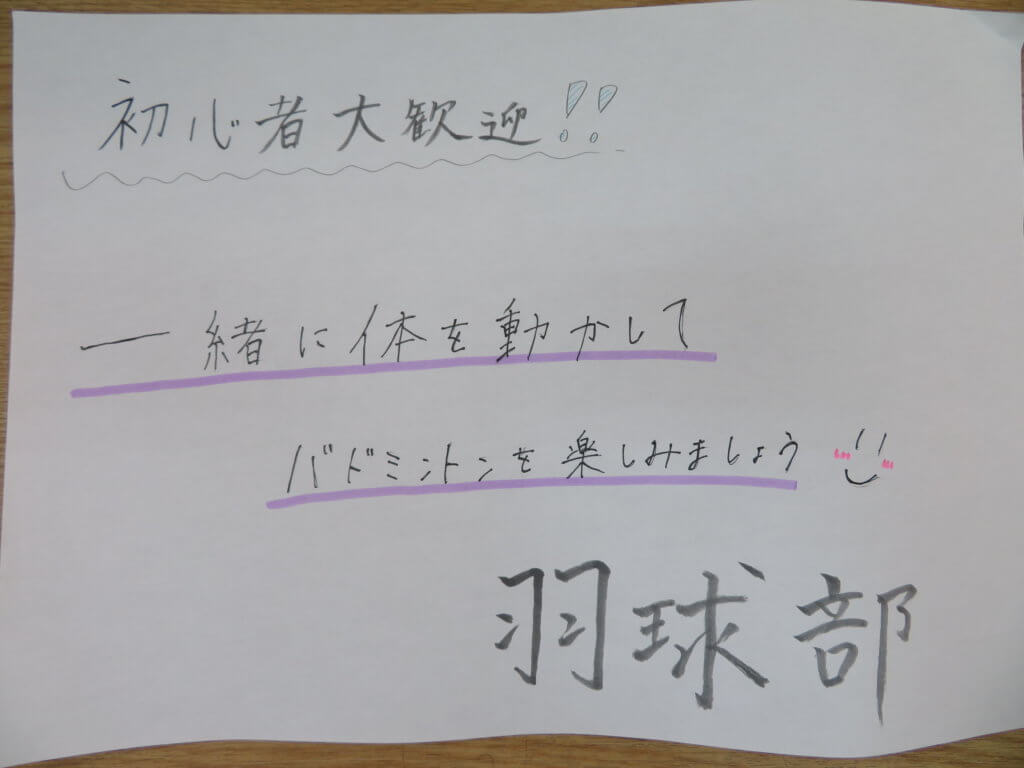 初心者大歓迎!!
一緒に体を動かして
バドミントンを楽しみましょう
羽球部